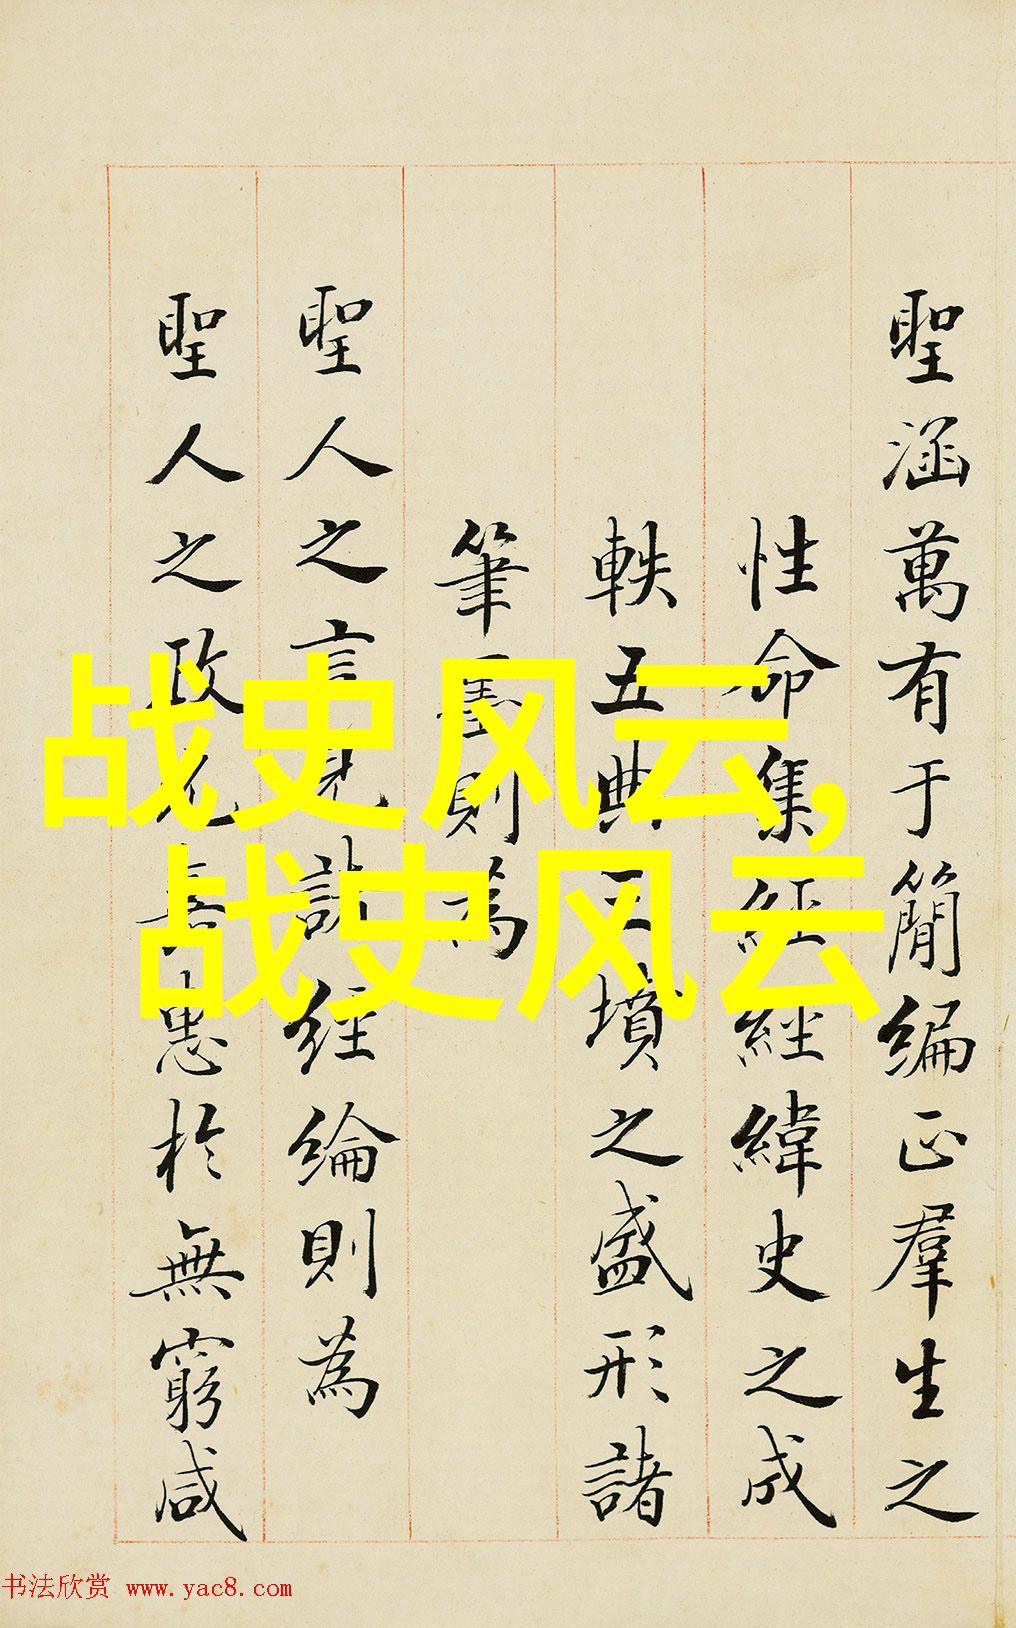 聖涵萬有于簡編正羣生之
性命集經經緯史之成
軼五典三墳之盛形諸
筆墨則為
聖人之言見諸經綸則為
聖人之政兆善患於無窮咸
战史风云,
战史风云
书法欣赏 www.yac8.com